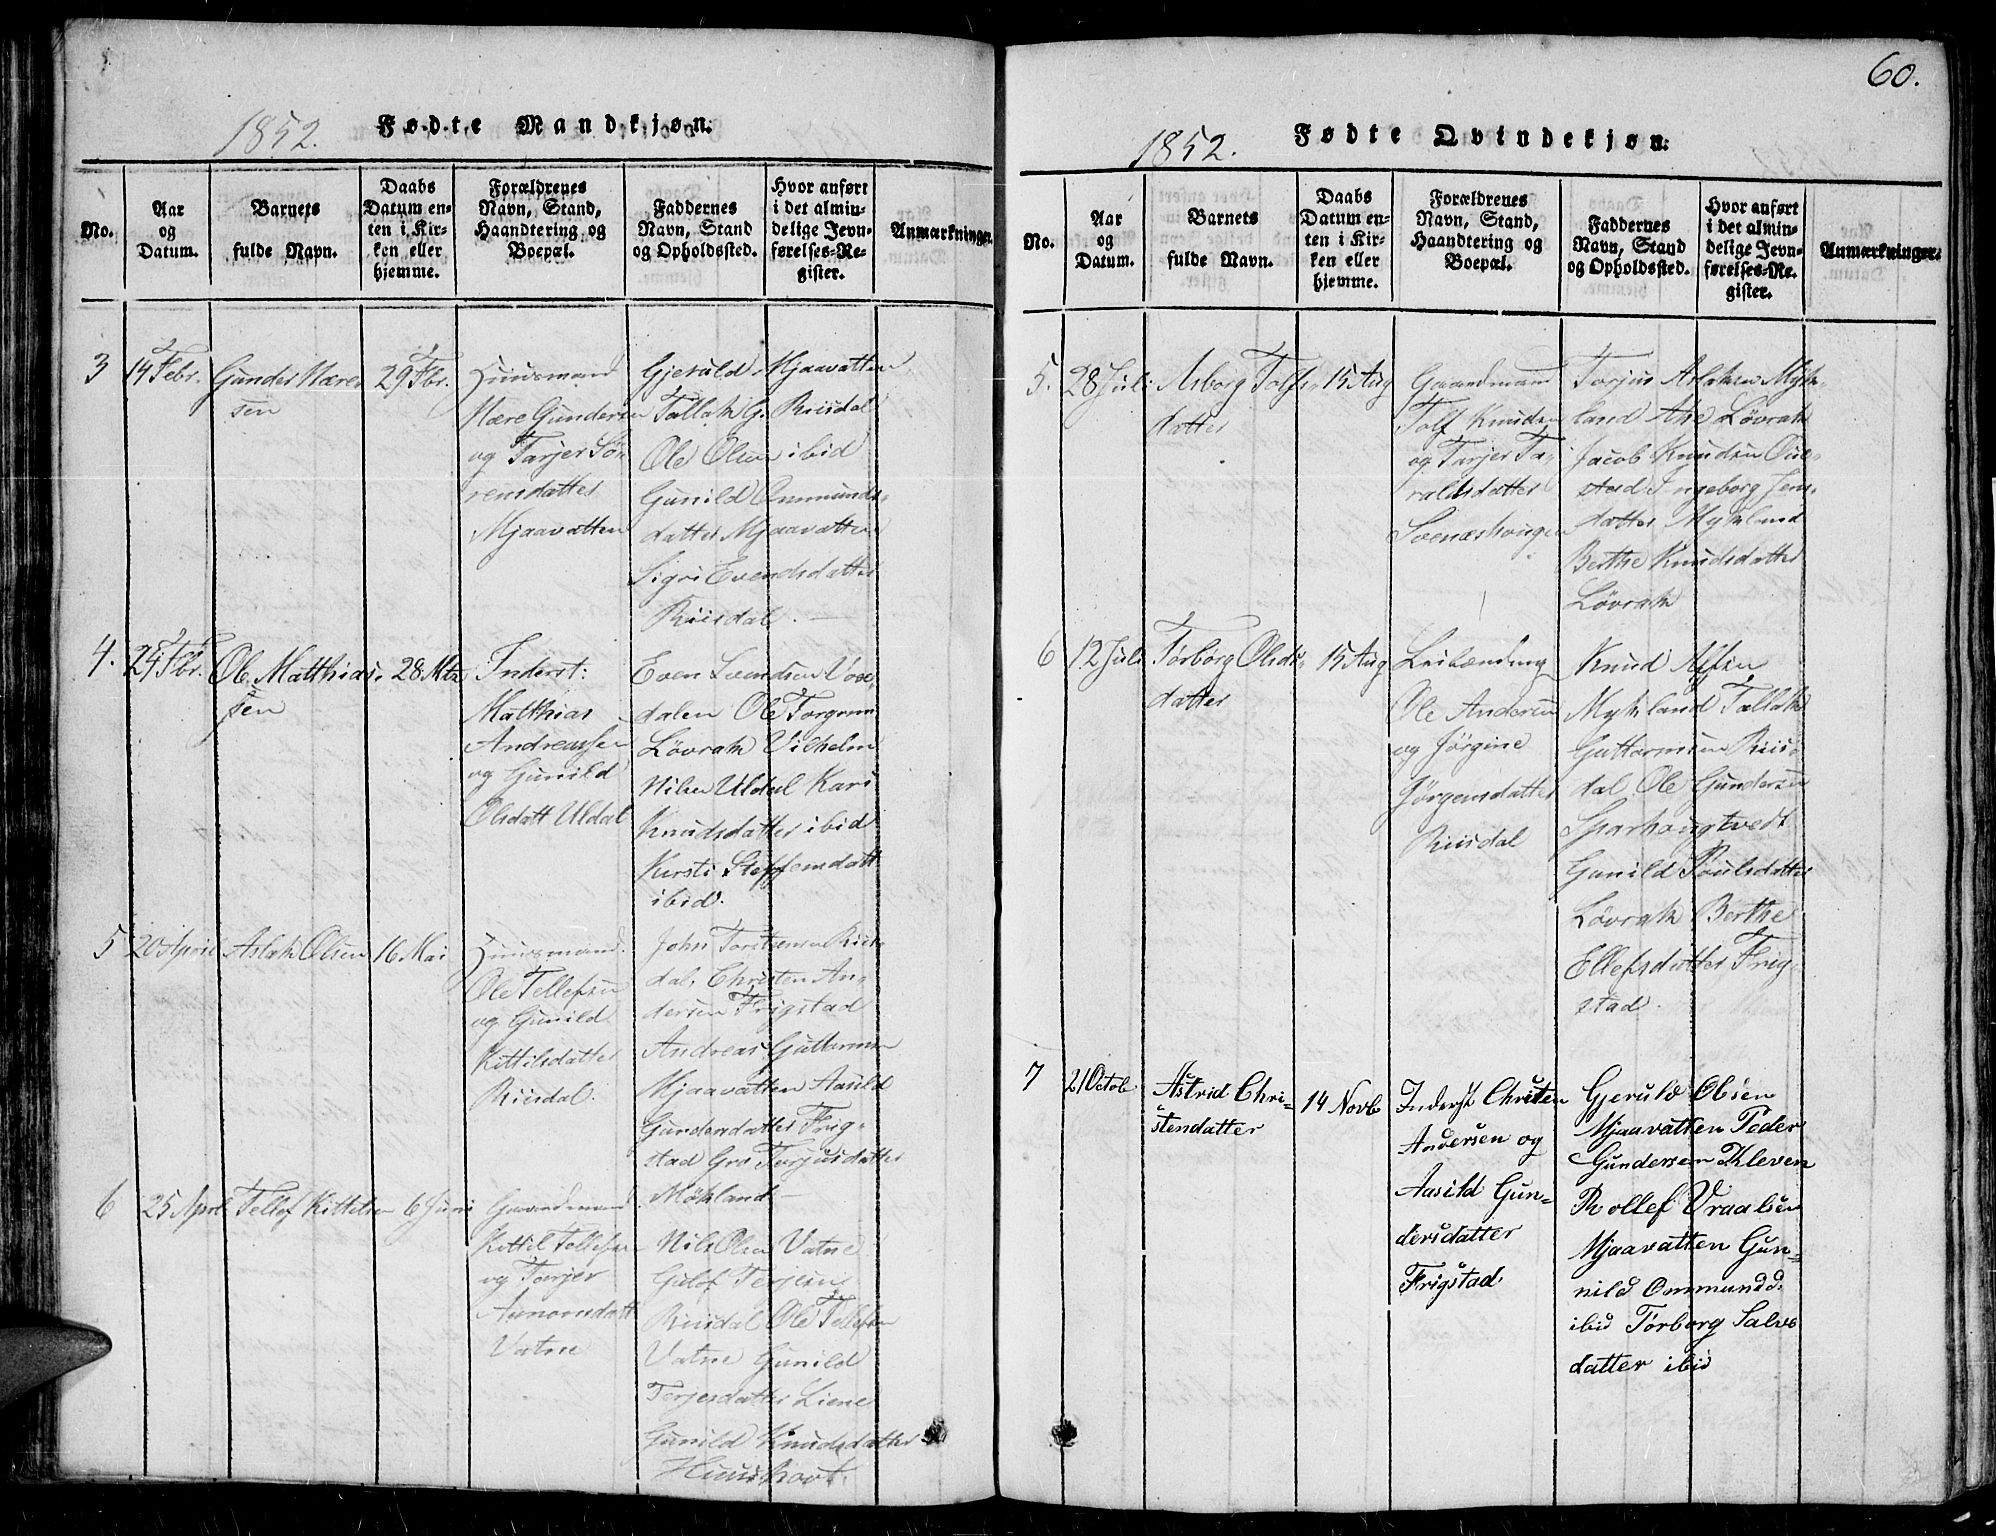 60.
1852. Fødte Mandkjøn.
No.
Aar
og
Datum.
Barnets
fulde Navn.
Daabs
Datum en-
ten i Kir-
ken eller
hjemme.
Forældrenes
Navn, Stand,
Haandtering og
Boepæl.
Faddernes
Navn, Stand
og Opholdssted.
Hvor anført
i det almin-
delige Jevn-
førelses-Re-
gister.
Anmærkninger.
3 14 Febr. Gunder Nære-
sen
29 Fbr.
Huusmand
Nære Gundersen
og Tarjer Sø-
rensdatter
Mjaavatten
Gjeruld Mjaavatten
Tallak G. Riisdal
Ole Olsen ibid
Gunild Ommunds-
datter Mjaavatten
Sigri Evendsdatter
Riisdal. —
4. 24 Fbr. Ole Matthias-
sen
28 Mtz
Inderst:
Matthias
Andreassen
og Gunild
Olsdatt Uldal
Even Svendsen
dalen Ole Torgrim
Løvrak Vilhelm
Nilsen Uldal Kari
Knudsdatter ibid
Kirsti Steffensdatt
ibid.
5 20 April Aslak Olsen 16 Mai
Huusmand
Ole Tellefsen
og Gunild
Kittilsdatter
Riisdal.
John Torstensen Riis-
dal, Christen An-
dersen Frigstad
Andreas Guttormsen
Mjaavatten Aasild
Gundersdatter Frig-
stad Gro Torjusdatter
Mökland —
6 25 April Tellef Kittilsen 6 Juni
Gaardmand
Kittil Tellefsen
og Tarjer
Aanonsdatt
Vatne
Nils Olsen Vatne
Gulof Terjesen
Riisdal Ole Tellefsen
Vatne Gunild
Terjesdatter Liene
Gunild Knudsdatter
1852. Fødte Qvindekjøn.
No.
Aar
og
Datum.
Barnets
fulde Navn.
Daabs
Datum en-
ten i Kir-
ken eller
hjemme.
Forældrenes
Navn, Stand,
Haandtering og
Boepæl.
Faddernes
Navn, Stand
og Opholdssted.
Hvor anført
i det almin-
delige Jevn-
førelses-Re-
gister.
Anmærkninger.
5. 28 Juli Asborg Tolfs-
datter
15 Aug
Gaardmand
Tolf Knudsen
og Tarjer Ta-
raldsdatter
Svenæshougen
Torjus Aslaksen Myk-
land Ase Lövrak
Jacob Knudsen Oue-
stad Ingeborg Jens-
datter Mykland
Berthe Knudsdatter
Lövrak
6 12 Juli Torborg Olsds-
datter
15 Aug
Leilænding
Ole Andersen
og Jørgine
Jørgensdatter
Riisdal
Knud
Mykland Tallak
Guttormsen Riis-
dal Ole Gundersen
Sparhougtvedt
Gunild Poulsdatter
Lövrak Berthe
Ellefsdatter Frig-
stad.
7 21 Octob Astrid Chri=
stendatter
14 Novb
Inderst Christen
Andersen og
Aasild Gun=
dersdatter
Frigstad.
Gjeruld Olsen
Mjaavatten Peder
Gundersen Kleven
Rollef Vraalsen
Mjaavatten Gun=
nild Ommundd.
ibid Torborg Salvs
datter ibid